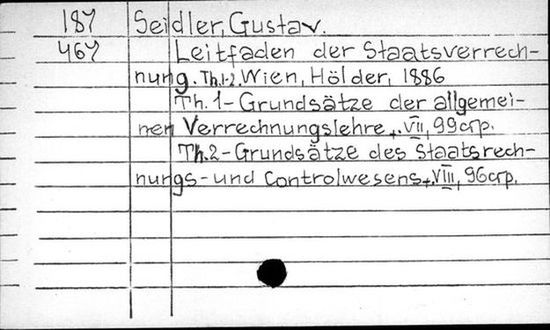 187 Seidler, Gustav.
467 Leitfaden der Staatsverrech-
nung. Th.1-2. Wien, Hölder, 1886
Th. 1 - Grundsätze der allgemei-
nen Verrechnungslehre. VII, 99 стр.
Th. 2 - Grundsätze des Staatsrech-
nungs- und Controlwesens. VIII, 96 стр.